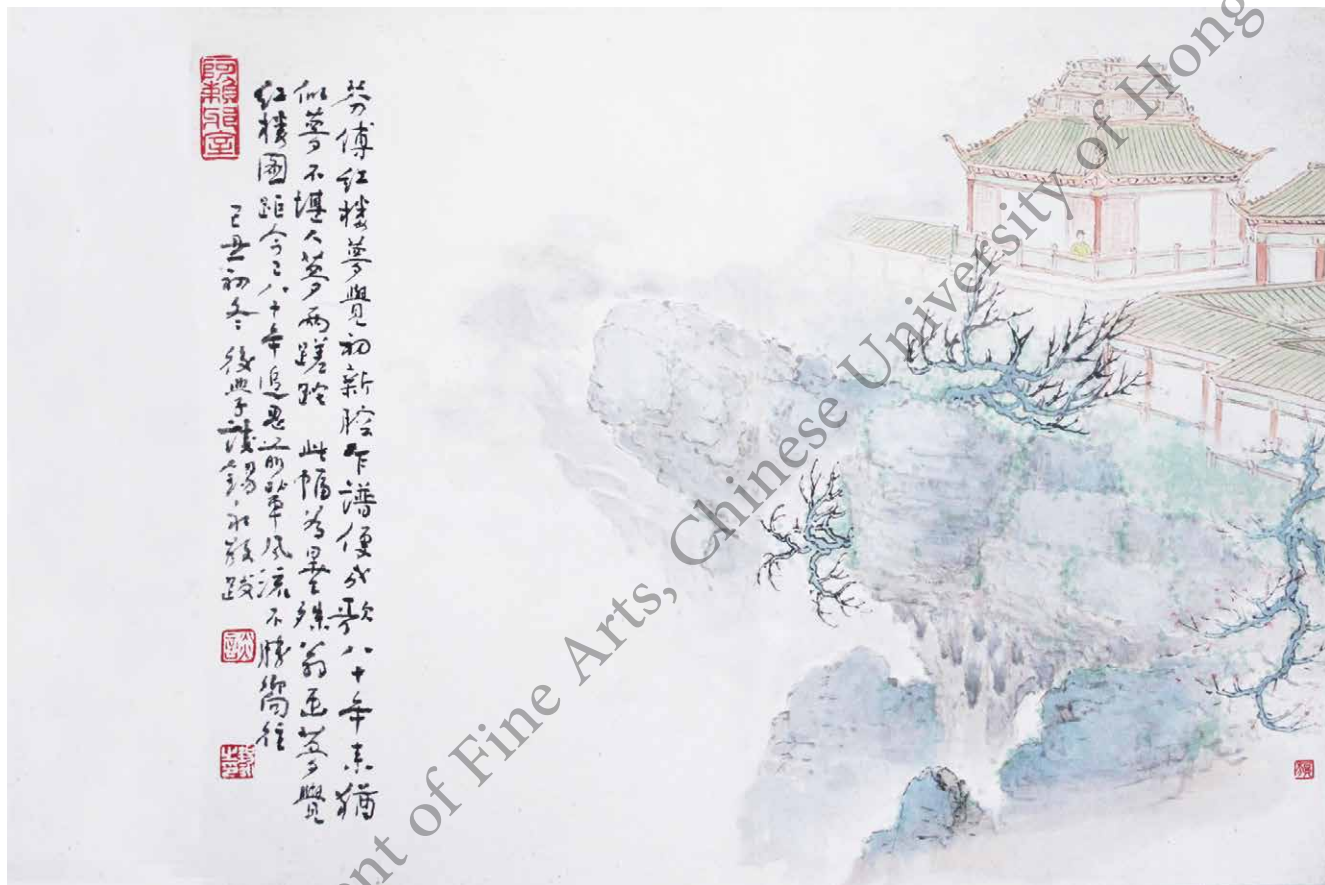 傳紅樓夢覺初新腔乍譜便成歌八十年來猶
似夢不堪人夢兩蹉跎 此幅為殊翁画夢覺
紅樓圖距今已八十年追思前輩風流不勝嚮往
己丑初冬 後學談錫永敬跋
阿賴耶室
談
ent of Fine Arts, Chinese University of Hong